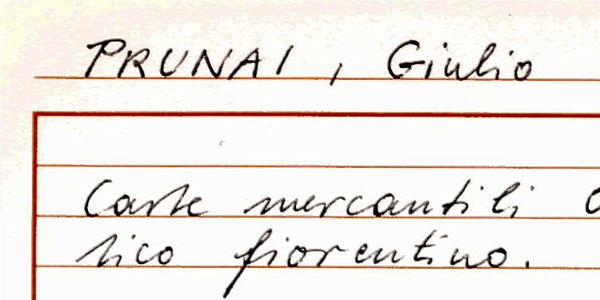 PRUNAI, Giulio
Carte mercantili
tico fiorentino.